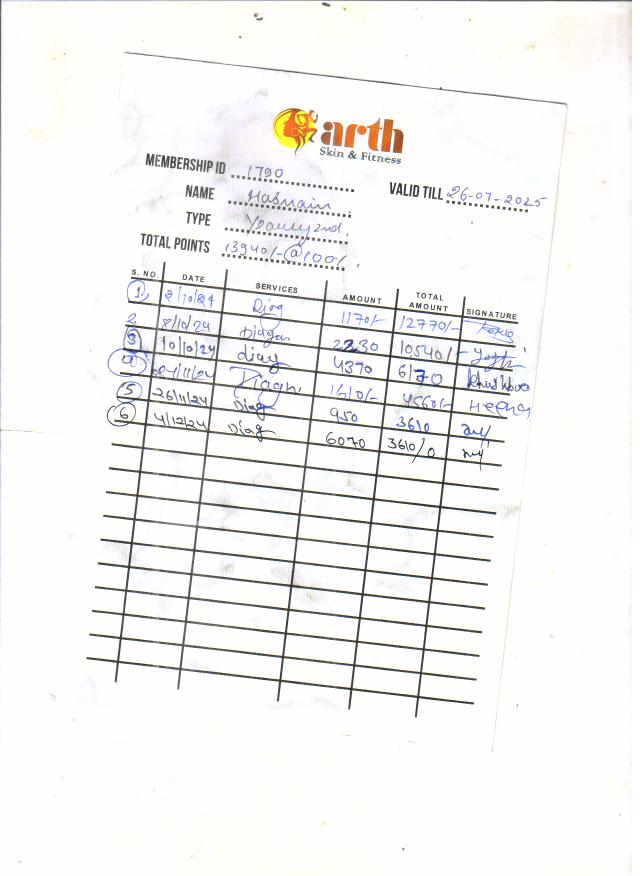 arth
Skin & Fitness
MEMBERSHIP ID 1790
VALID TILL 26-07-2025
NAME Hasnain
TYPE
TOTAL POINTS 13940/-@100%
S. NO. DATE SERVICES AMOUNT TOTAL AMOUNT SIGNATURE
1 2/10/24 Diag 1170/- 12770/-
2 8/10/24 Diagn 2230 10540/-
3 10/10/24 diag 4370 6170 Khushboo
4 24/11/24 Diagn. 1610/- 4560/- Heena
5 26/11/24 Diag 950 3610
6 4/12/24 Diag 6070 3610/0